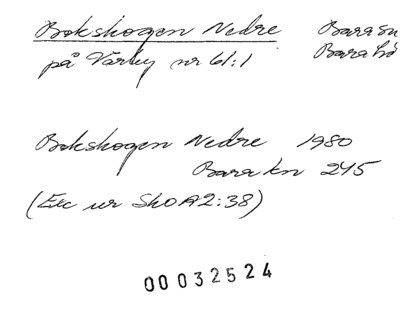 Bokskogen Nedre Bara sn
på Värby nr 61:1 Bara hd
Bokskogen Nedre 1980
Bara kn 245
(Exc ur SkOA2:38)
00032524